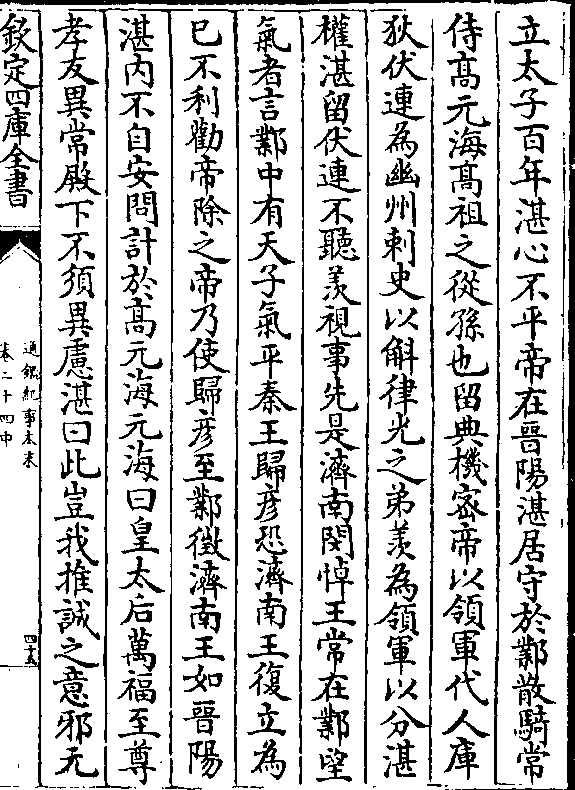 立太子百年湛心不平帝在晉陽湛居守於鄴散騎常
侍髙元海髙祖之從孫也留典機密帝以領軍代人庫
狄伏連為幽州刺史以斛律光之弟羨為領軍以分湛
權湛留伏連不聽羨視事先是濟南閔悼王常在鄴望
氣者言鄴中有天子氣平秦王歸彦恐濟南王復立為
已不利勸帝除之帝乃使歸彦至鄴徵濟南王如晉陽
湛内不自安問計於髙元海元海曰皇太后萬福至尊
孝友異常殿下不須異慮湛曰此豈我推誠之意邪元
欽定四庫全書
通鑑紀事本末
卷二十四中
四十五